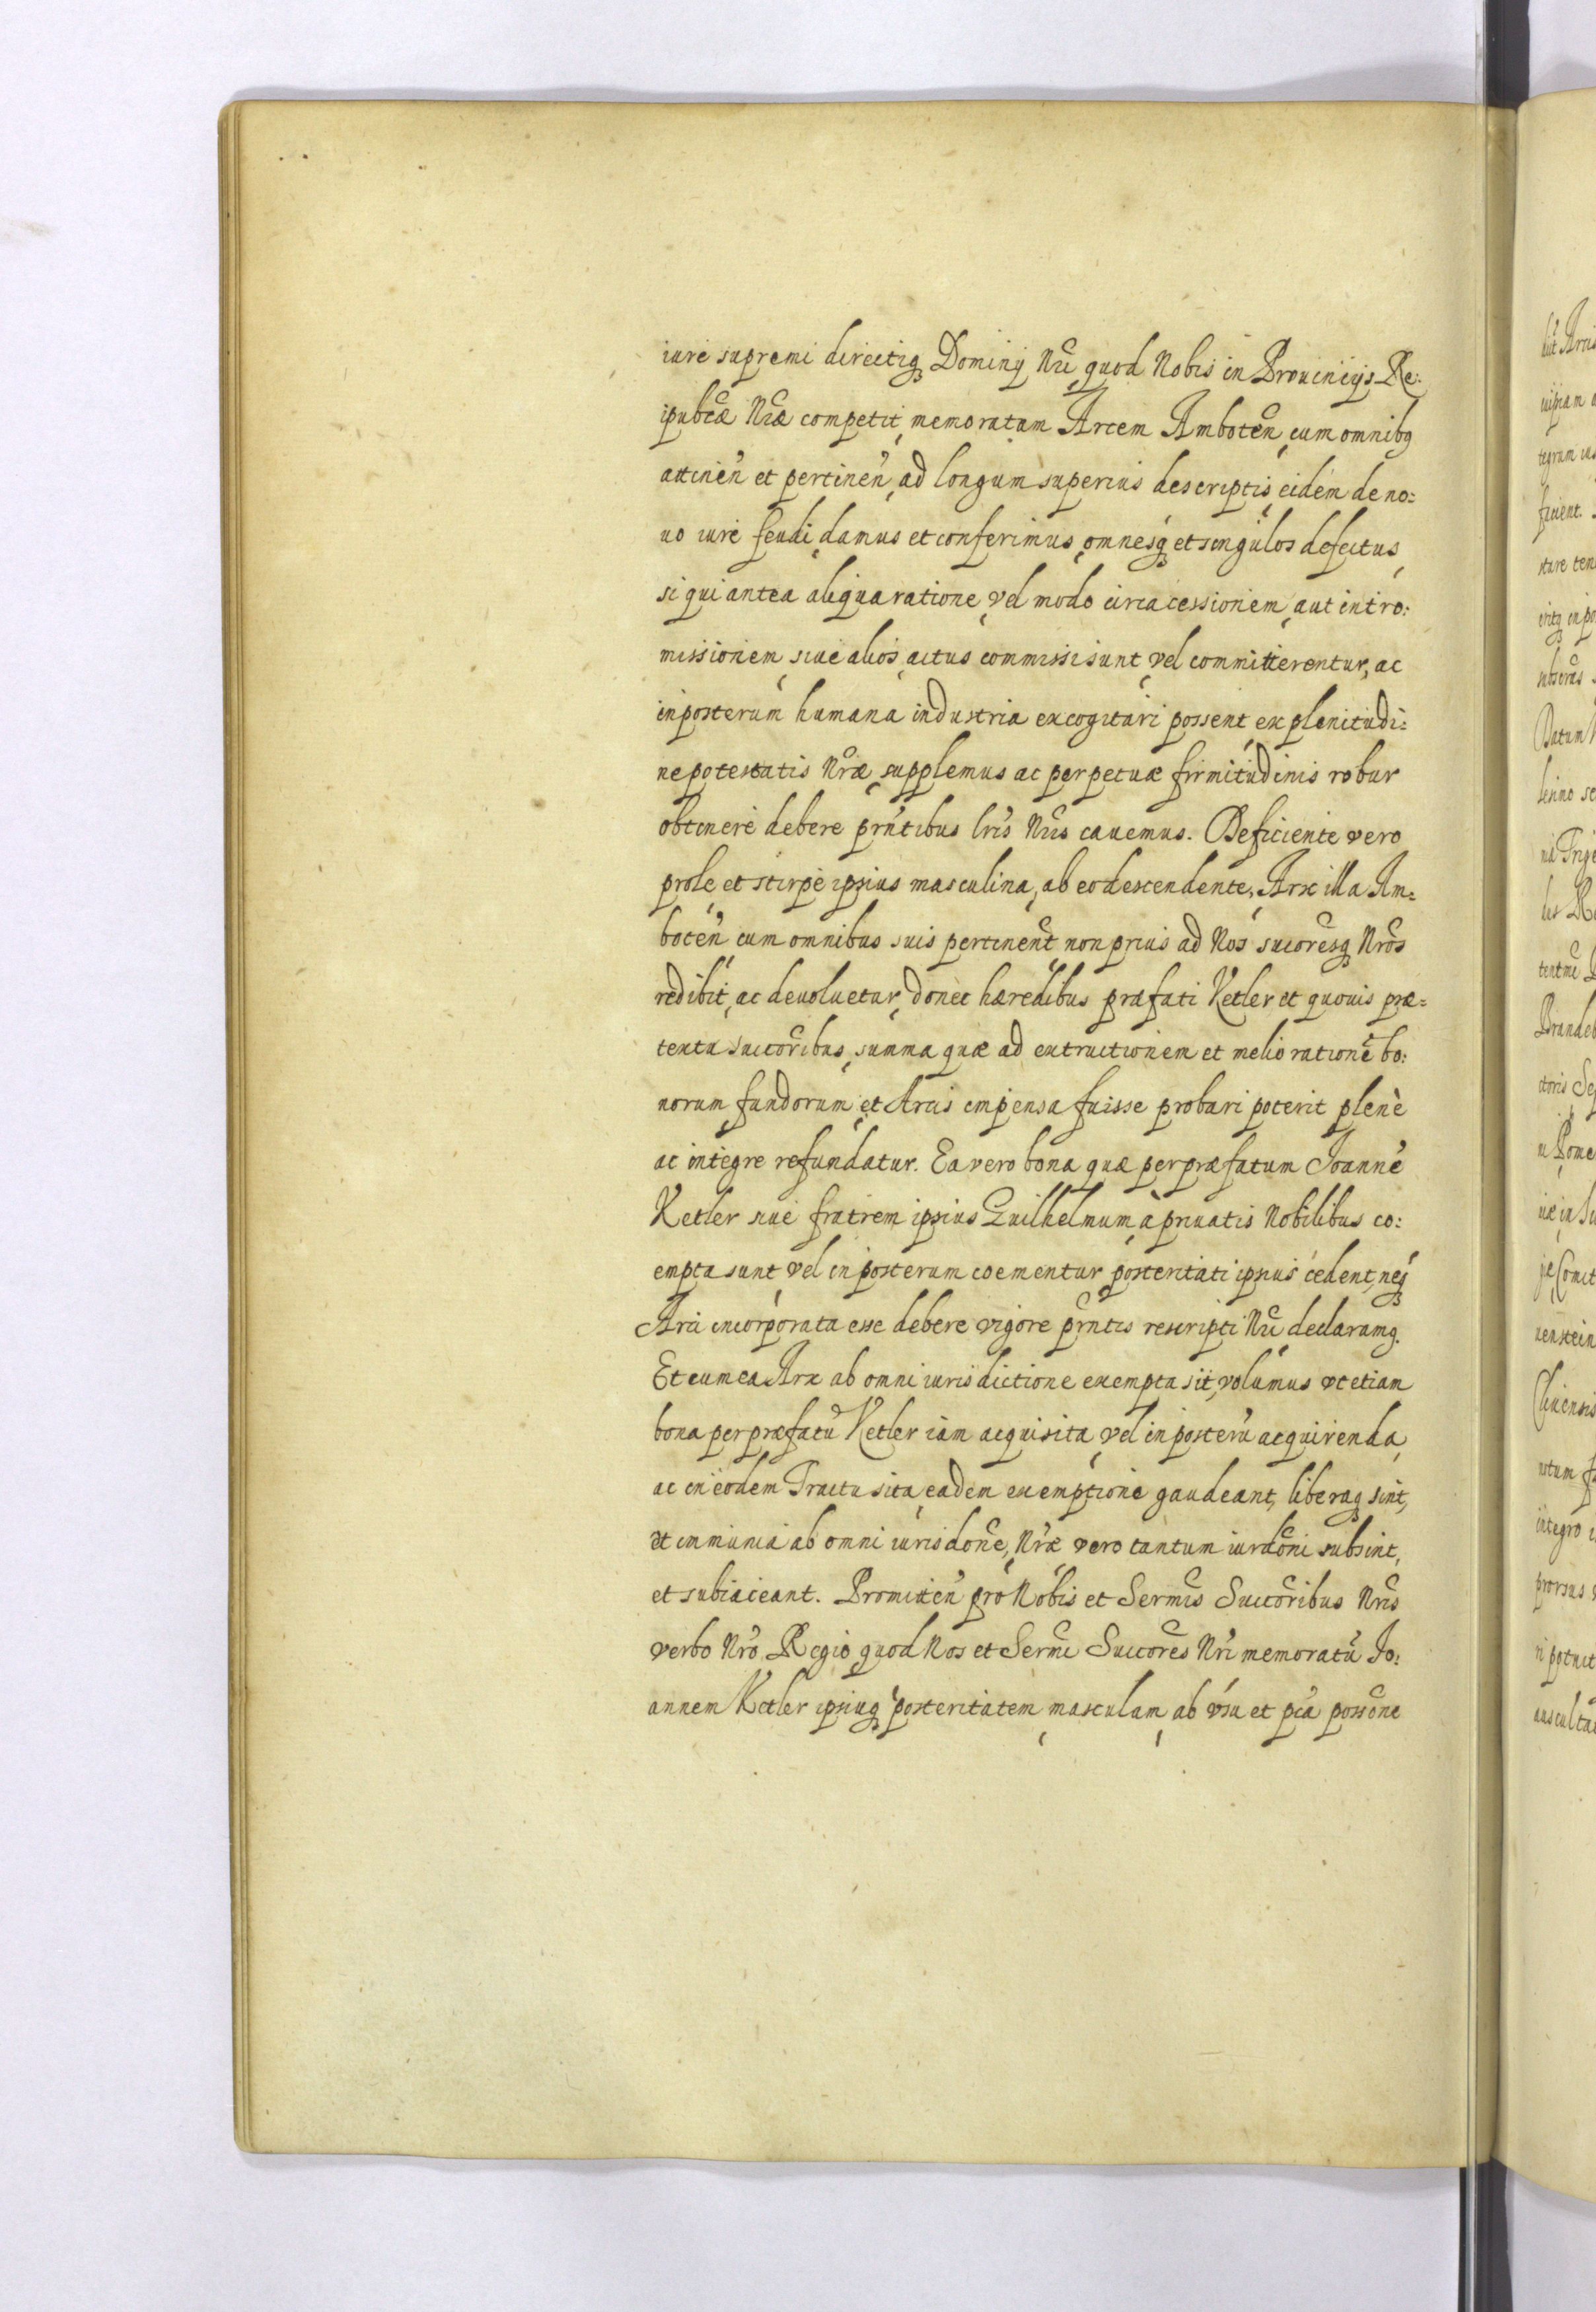 iure supremi directiq₃ Dominÿ Nri quod Nobis in Prouincijs Re:
ipubcæ Nræ competit, memoratam Arcem Amboten, cum omnibq
attinen et pertinen, ad longum superius descriptis, eidem de no:
uo iure feudi, damus et conferimus, omnesq₃ et singulos defectus,
si qui antea aliqua ratione, vel modo circa cessionem, aut intro:
missionem, siue alios, actus commissi sunt, vel committerentur, ac
inposterum humana industria excogitari possent, ex plenitudi:
ne potestatis Nræ, supplemus ac perpetuæ firmitudinis robur
obtinere debere prntibus lris Nris cauemus. Deficiente vero
prole, et stirpe ipsius masculina, ab eo descendente, Arx illa Am:
boten, cum omnibus suis pertinent, non prius ad Nos sucoresq₃ Nros
redibit, ac deuoluetur, donec hæredibus præfati Ketler et quouis præ:
textu succoribus, summa quæ ad extructionem et meliorationē bo:
norum, fundorum, et Arcis impensa fuisse probari poterit plenè
ac integre refundatur. Ea vero bona quæ per præfatum Joannē
Ketler siue fratrem ipsius Guilhelmum, à priuatis Nobilibus co:
empta sunt, vel inposterum coementur, posteritati ipsius cedent, neq₃
Arci incorporata esse debere vigore prntis rescripti Nri declaramq.
Et cum ea Arx ab omni iurisdictione exempta sit, volumus vt etiam
bona per præfatū Ketler iam acquisita, vel inposterū acquirenda,
ac in eodem Tractu sita, eadem exemptione gaudeant, liberaq₃ sint,
et immunia ab omni iurisdone, Nræ vero tantum iurdoni subsint,
et subiaceant. Promitten pro Nobis et Sermis Succoribus Nris
verbo Nro Regio, quod Nos et Sermi Succores Nri memoratū Jo:
annem Ketler ipsiusq₃ posteritatem, masculam, ab vsu et pca possone